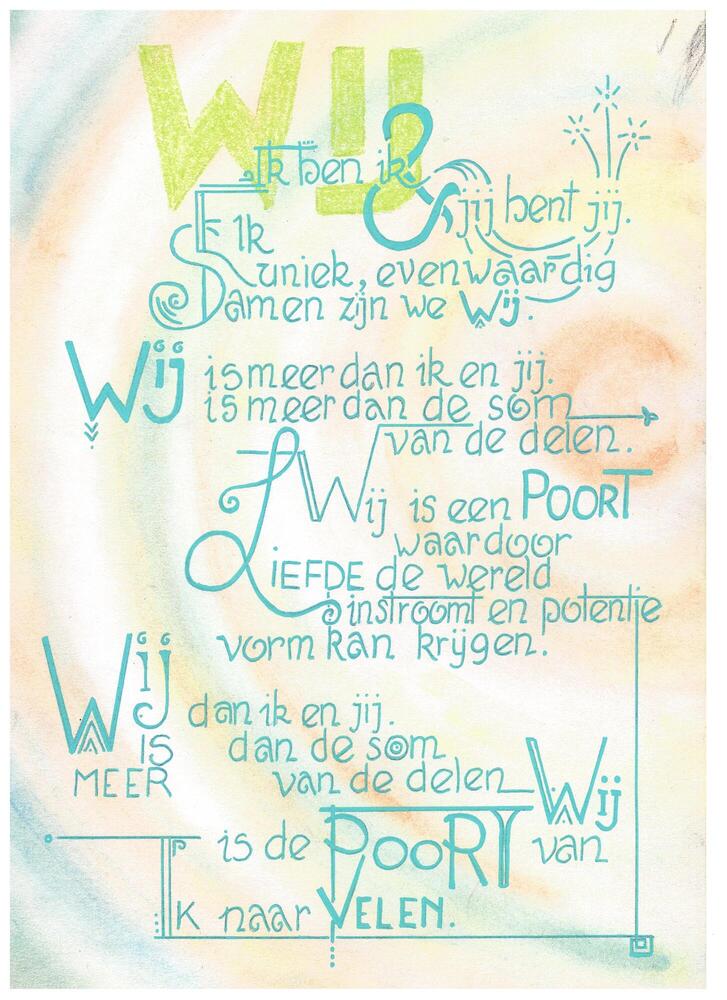 WIJ
Ik ben ik
& jij bent jij.
Elk
uniek, evenwaardig
Samen zijn we Wij.
Wij is meer dan ik en jij.
is meer dan de som
van de delen.
Wij is een POORT
waardoor
LIEFDE de wereld
instroomt en potentie
vorm kan krijgen.
Wij dan ik en jij.
IS dan de som
MEER van de delen Wij
is de POORT van
IK naar VELEN.